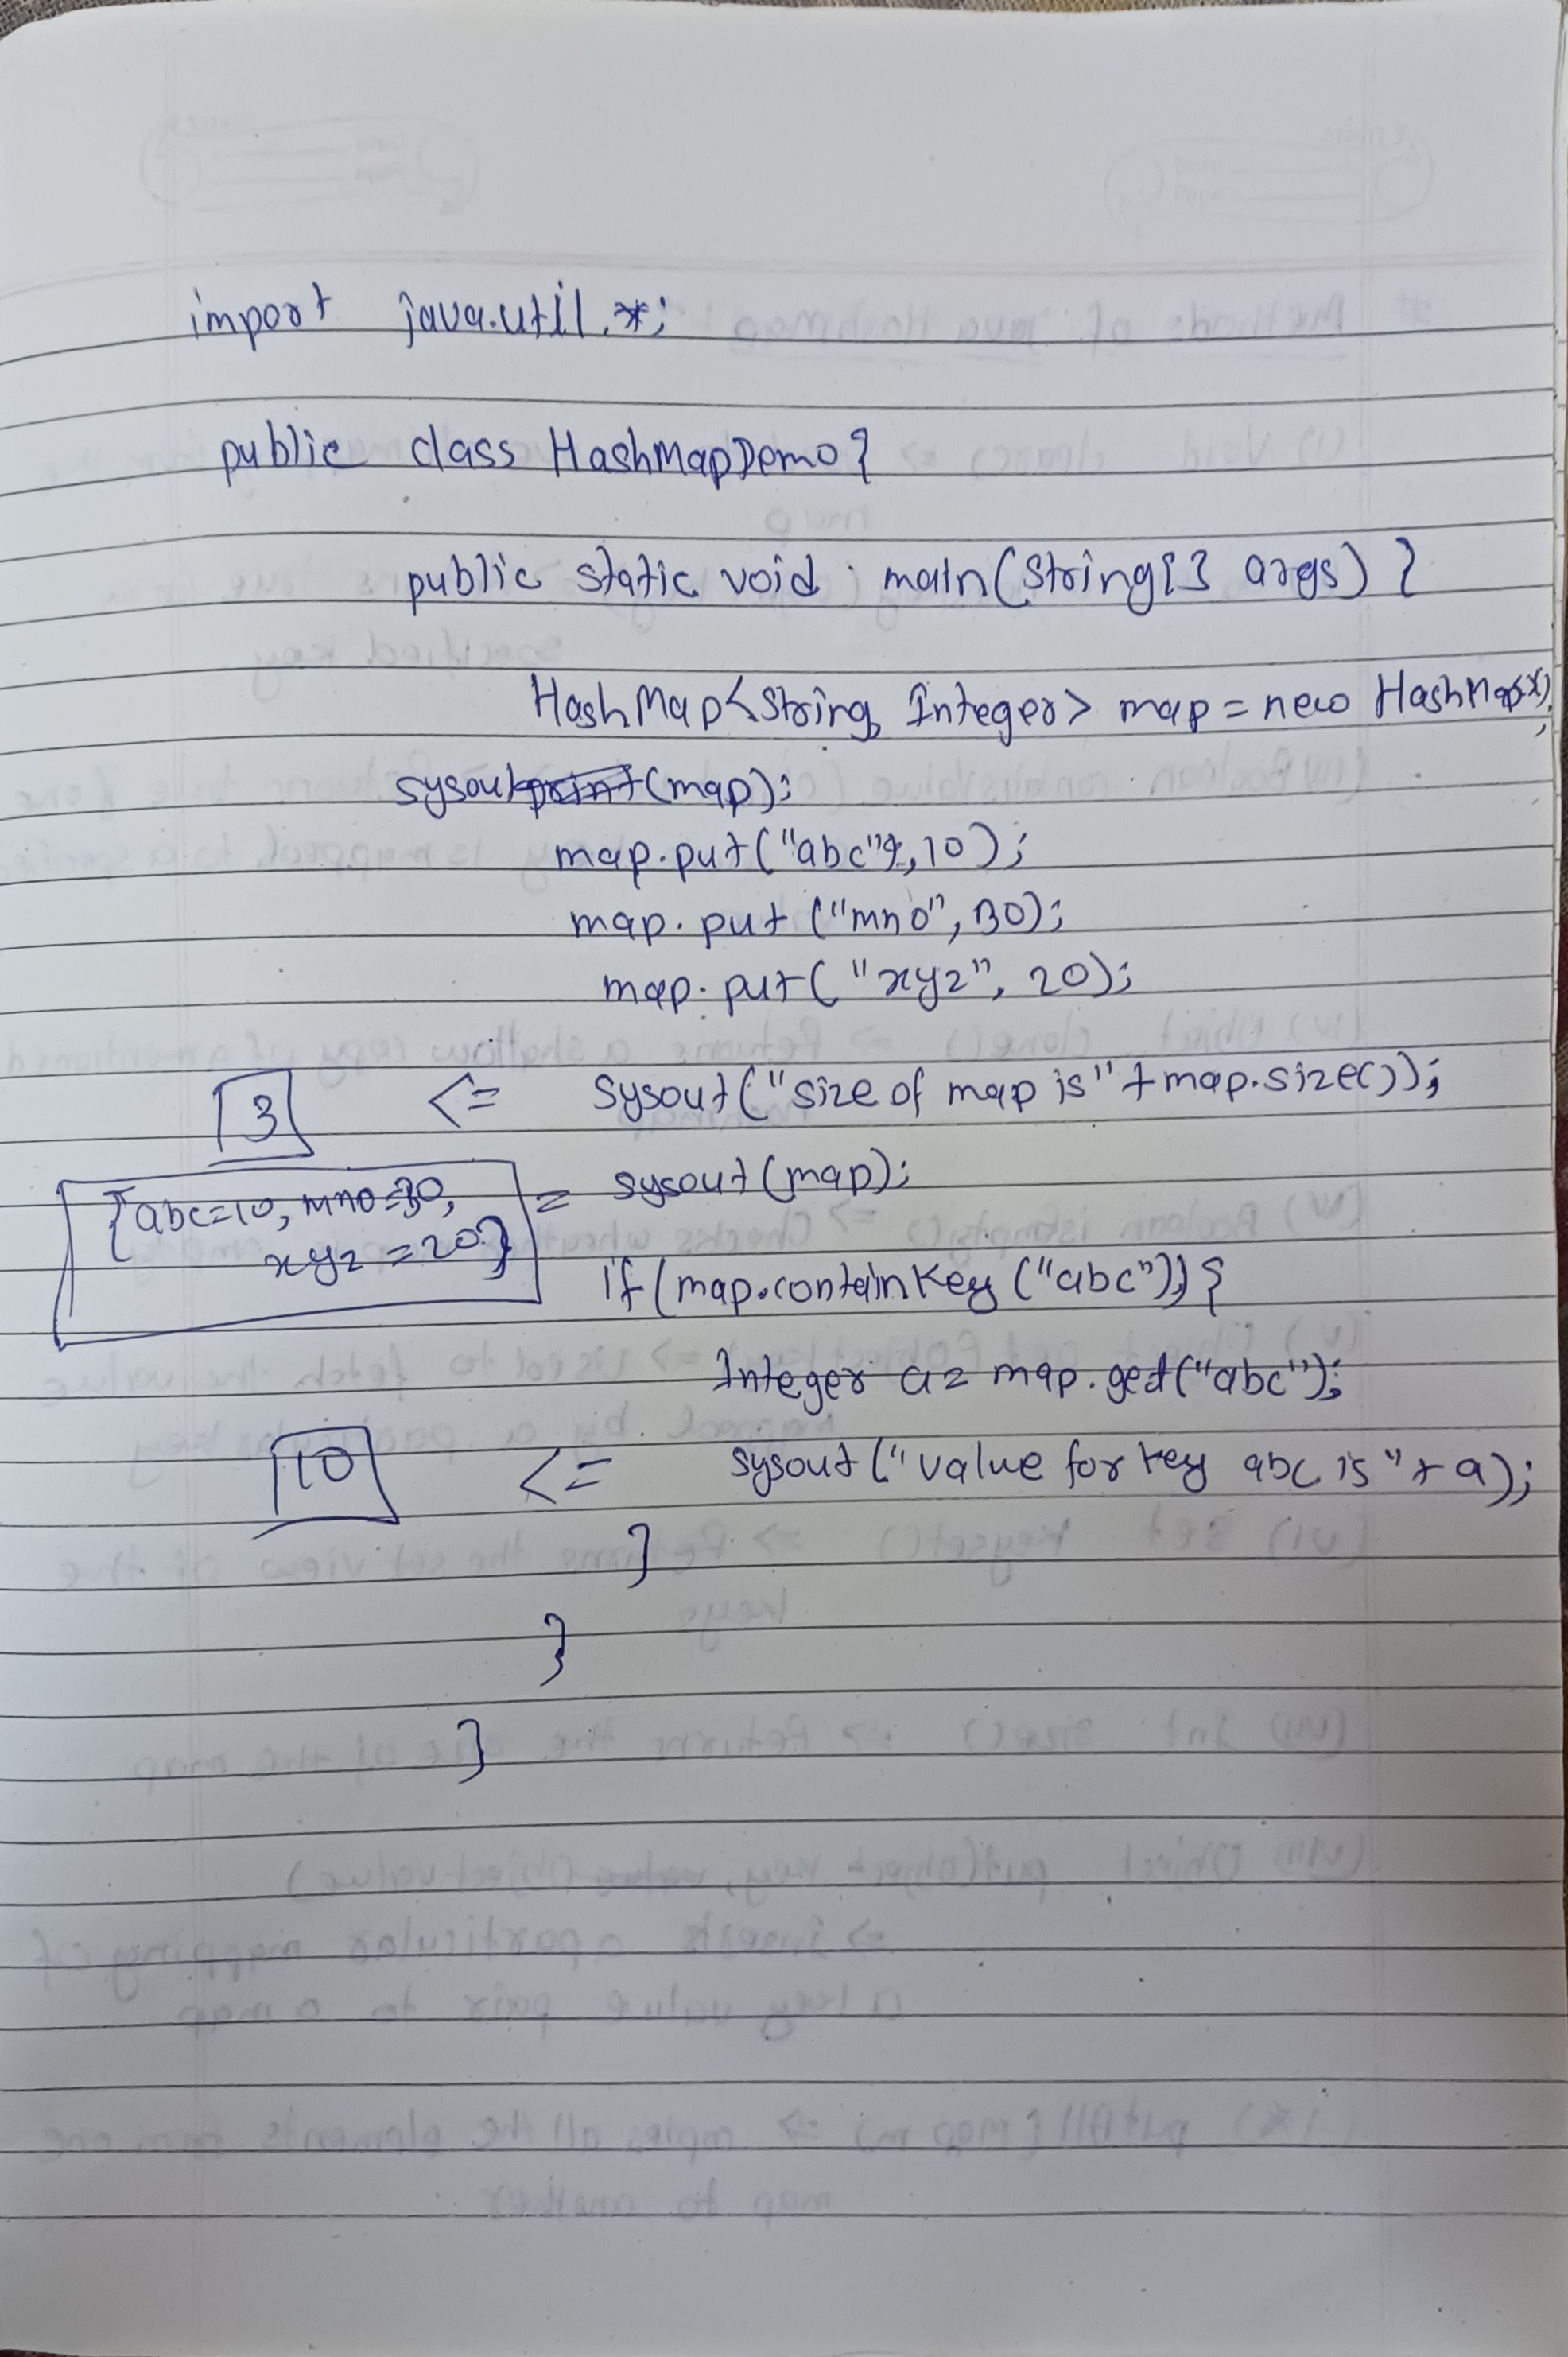 import java.util.*;
public class HashMapDemo{
public static void main(String[] args) {
HashMap<String, Integer> map = new HashMap<>();
sysout(map);
map.put("abc", 10);
map.put("mno", 30);
map.put("xyz", 20);
3 <= sysout("size of map is" + map.size());
{abc=10, mno=30, xyz=20} = sysout(map);
if(map.containKey("abc")){
Integer a = map.get("abc");
10 <= sysout("value for key abc is" + a);
}
}
}